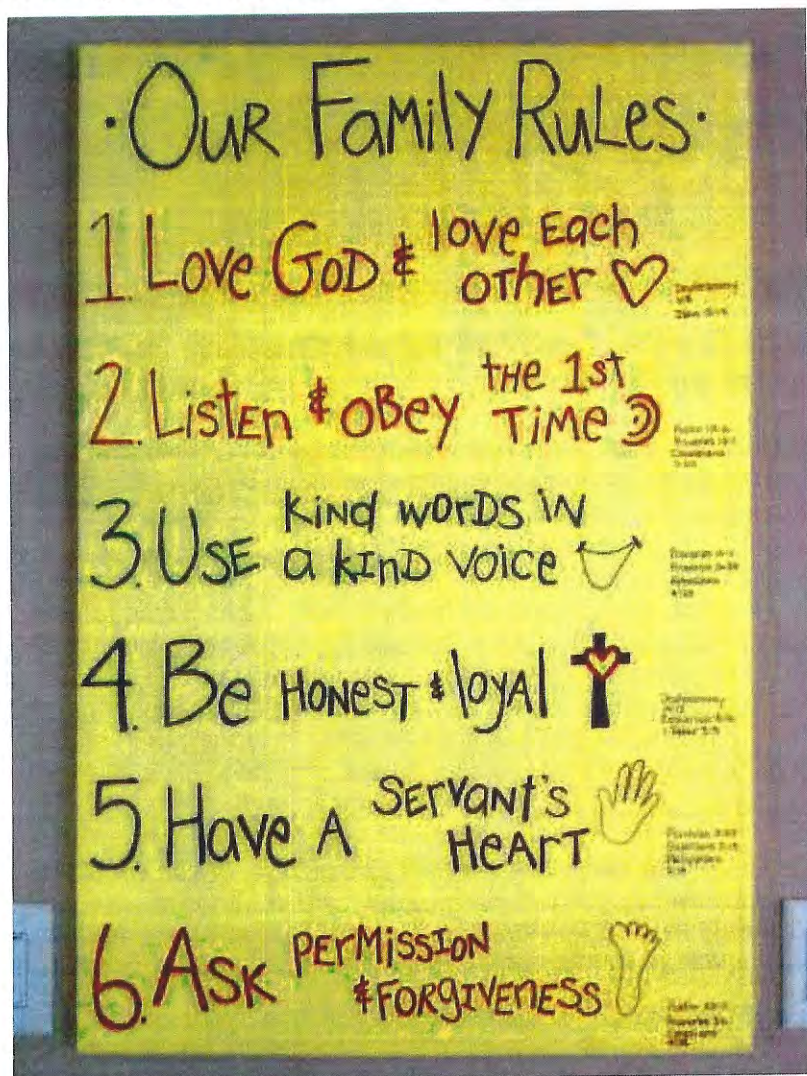 ·Our Family Rules·
1. Love God & love Each
Other
2. Listen & Obey the 1st
Time
3. Use kind words in
a kind voice
4. Be Honest & loyal
5. Have A Servant's
Heart
6. Ask Permission
& Forgiveness